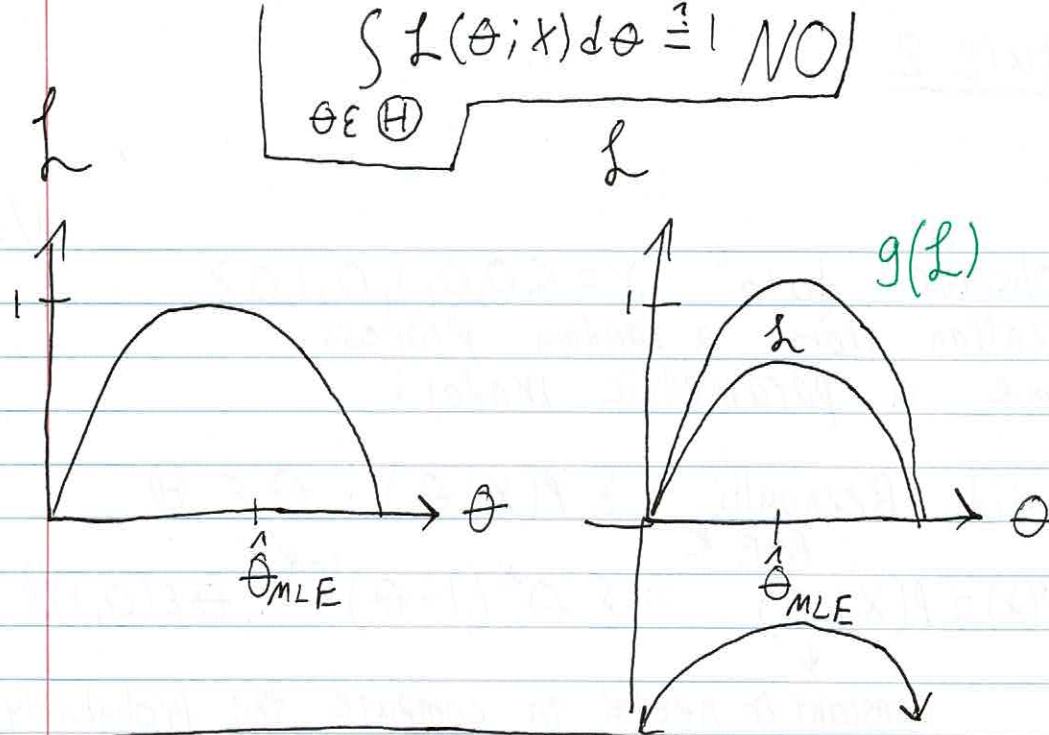 ∫ L(θ; X) dθ ≟ 1 NO
θ ε Ⓗ
L
L
1
θ
θ̂ MLE
g(L)
1
L
θ
θ̂ MLE